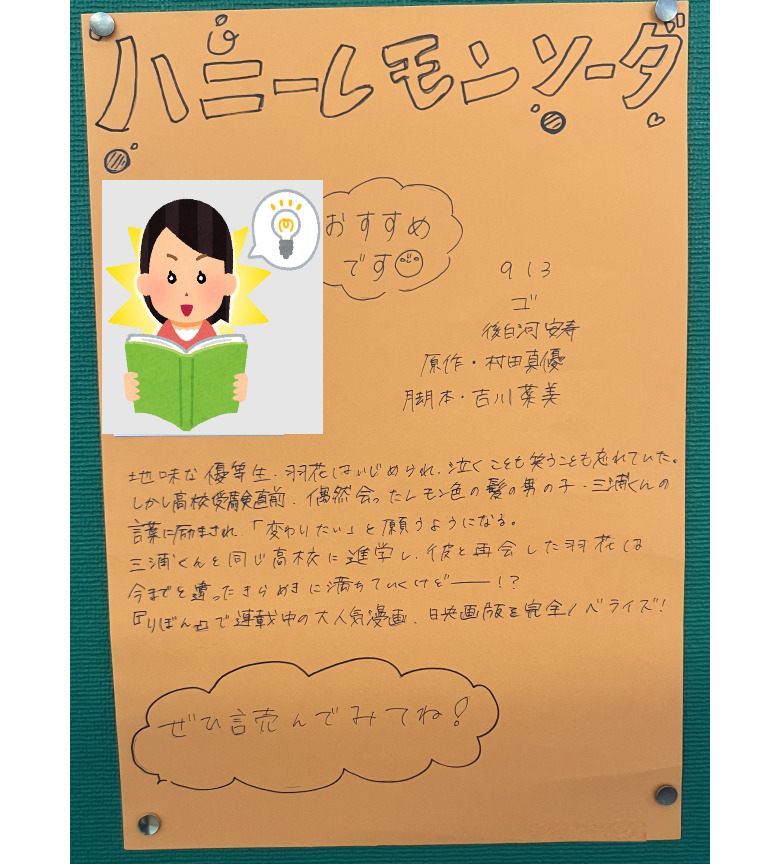 ハニーレモンソーダ
おすすめ
です
913
ゴ
後白河安寿
原作・村田真優
脚本・吉川菜美
地味な優等生・羽花はいじめられ、泣くことも笑うことも忘れていた。
しかし高校受験直前、偶然会ったレモン色の髪の男の子・三浦くんの
言葉に励まされ、「変わりたい」と願うようになる。
三浦くんと同じ高校に進学し、彼と再会した羽花は
今までと違ったきらめきに満ちていくけど――!?
『りぼん』で連載中の大人気漫画、映画版を完全ノベライズ!
ぜひ読んでみてね!